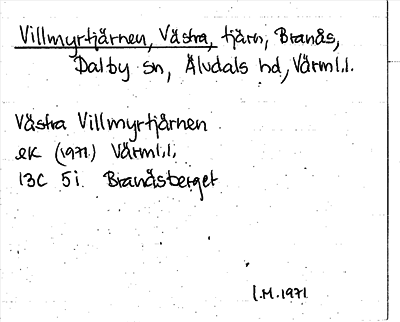 Villmyrtjärnen, Västra, tjärn, Branäs,
Dalby sn, Älvdals hd, Värml.l.
Västra Villmyrtjärnen
ek (1971) Värml.l.
13C 5i Branäsberget
I.M. 1971